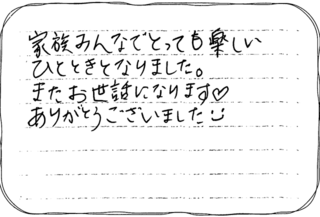 家族みんなでとっても楽しい
ひとときとなりました。
またお世話になります♡
ありがとうございました☺